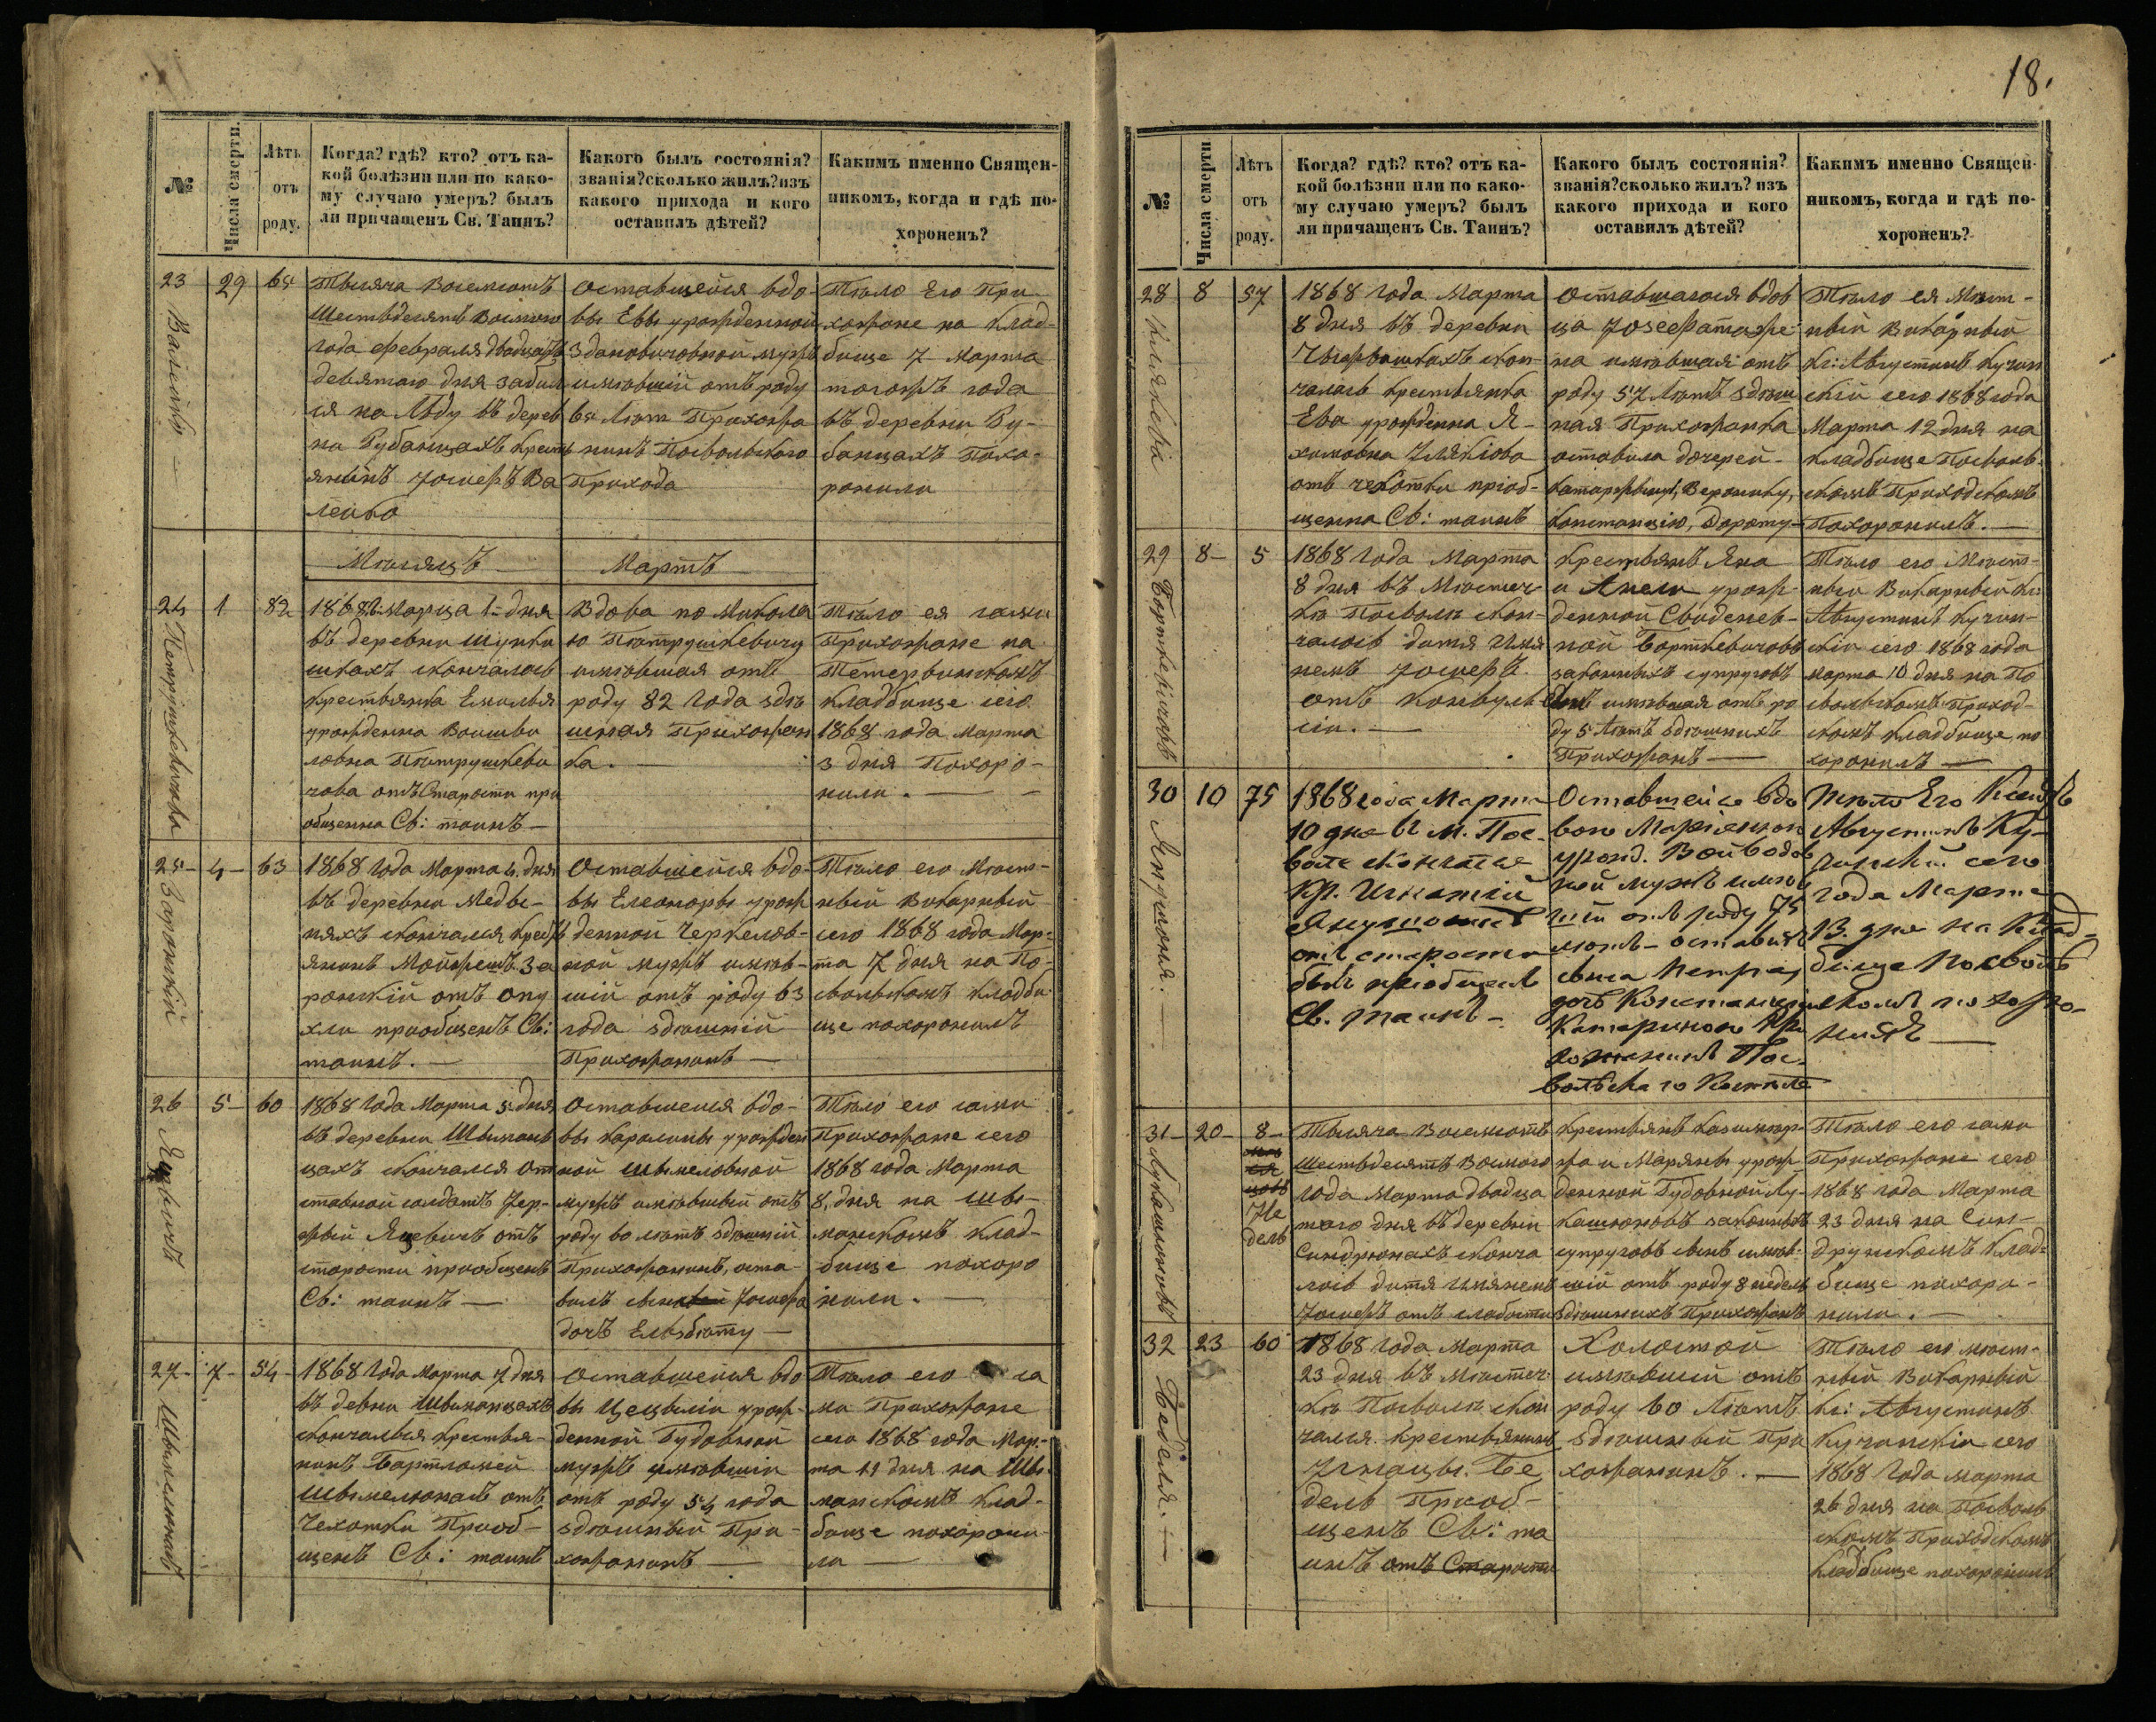 18.
№
Числа смерти.
Лѣтъ
отъ
роду.
Когда? гдѣ? кто? отъ ка-
кой болѣзни или по како-
му случаю умеръ? былъ
ли причащенъ Св. Таинъ?
Какого былъ состоянія?
званія? сколько жилъ? изъ
какого прихода и кого
оставилъ дѣтей?
Какимъ именно Священ-
никомъ, когда и гдѣ по-
хороненъ?
23
Валейко
29
64
Тысяча Восемсотъ
Шестьдесятъ Восмого
года февраля двадцать
девятаго дня забил
ся на Льду въ дерев
ни Губанцахъ Кресть
янинъ Іосифъ Ва
лейко
оставшейся вдо-
вы Евы урожденной
Здановичовной мужъ
имѣвшій отъ роду
64 Лѣт Прихожа
нинъ Посвольского
Прихода
Тѣло Его При
хожане на Клад-
бище 7 Марта
тогожъ года
въ деревни Гу-
банцахъ Похо-
ронили
Мѣсяцъ
Мартъ
24
Петрушкевичова
1
82
1868 г. Марца 1. дня
въ деревни Шунки
шкахъ скончалась
крестьянка Емилья
урожденна Воишви
ловна Петрушкеви
чова отъ Старости при
общенна Св: таинъ —
Вдова по Микола
ю Петрушкевичу
имѣвшая отъ
роду 82 года здѣ
шная Прихожан
ка. —
Тѣло ея сами
Прихожане на
Тетервинскомъ
Кладбище сего
1868 года Марта
3 дня Похоро-
нили. —
25
Заронскій
4
63
1868 года Марта 4. дня
въ деревни Медвы-
няхъ скончался крест
янинъ Мойжешъ За
ронскій отъ опу
хли приобщенъ Св:
таинъ. —
Оставшейся вдо-
вы Елеоноры урож
денной Черкелов-
ной мужъ имѣв-
шій отъ роду 63
года здѣшній
Прихожанинъ —
Тѣло его Мѣст-
ный Викарный
сего 1868 года Мар-
та 7 дня на По-
свольскомъ кладби-
ще похоронилъ
26
Яцевичъ
5
60
1868 года Марта 5 дня
въ деревни Швыман
цахъ скончался от
ставной солдатъ Јер-
жый Яцевичъ отъ
старости приобщенъ
Св: таинъ —
Оставшейся вдо-
вы Каролины урожден
ной Швылевной
мужъ имѣвшый отъ
роду 60 лѣтъ здѣшній
Прихожанинъ, оста-
вилъ сына Іосифа
дочь Ельзбѣту —
Тѣло его сами
Прихожане сего
1868 года Марта
8. дня на Швы-
манскомъ клад-
бище похоро
нили. —
27
7
54
1868 года Марта 7 дня
въ девни Швыманцахъ
скончался крестья-
нинъ Бартломей
Швылелюнасъ отъ
Чехотки Приоб-
щенъ Св: таинъ
Оставшейся вдо
вы Цецыліи урож-
денной Гудовной
мужъ имѣвшій
отъ роду 54 года
здѣшный При-
хожанинъ —
Тѣло его са
ми Прихожане
сего 1868 года Мар-
та 11 дня на Швы
манскомъ клад-
бище похорони-
ли —
№
Числа смерти
Лѣтъ
отъ
роду.
Когда? гдѣ? кто? отъ ка-
кой болѣзни или по како-
му случаю умеръ? былъ
ли причащенъ Св. Таинъ?
Какого былъ состоянія?
званія? сколько жилъ? изъ
какого прихода и кого
оставилъ дѣтей?
Какимъ именно Священ-
никомъ, когда и гдѣ по-
хороненъ?
28
8
57
1868 года Марта
8 дня въ деревни
скон-
чалась крестьянка
Ева урожденна Я-
химовна
отъ чехотки приоб-
щенна Св: таинъ
Оставшагося вдов
ца Іозефата же-
на имѣвшая отъ
роду 57 Лѣтъ здѣш
ная Прихожанка
оставила дочерей-
Катаржину, Веронику,
Констанцію, Дороту —
Тѣло ея Мѣст-
ный Викарный
Кс: Августинъ Кучин
скій сего 1868 года
Марта 12 дня на
кладбище Посволь-
скомъ Приходскомъ
Похоронилъ. —
29
Борткевичъ
8
5
1868 года Марта
8 дня въ Мѣстеч-
кѣ Посволѣ скон-
чалось дитя Имя
немъ Іосифъ
отъ Конвуль
сіи. —
Крестьянъ Яна
и Анели урож-
денной Свиденев-
ной Борткевичовъ
законныхъ супруговъ
сынъ имѣвшая отъ ро
ду 5 Лѣтъ здѣшнихъ
Прихожанъ —
Тѣло его Мѣст-
ный Викарный Кс:
Августинъ Кучин-
скій сего 1868 года
марта 10 дня на По
свольскомъ Приход-
скомъ Кладбище по
хоронилъ —
30
10
75
1868 года Марта
10 дня въ М. Пос-
воле скончался
Кр. Игнатій
отъ старости
былъ приобщенъ
Св. таинъ —
Оставшейся вдо
вою Маріянною
урожд. Войводов
ной мужъ имѣв
шій отъ роду 75
лѣтъ — оставилъ
сына Петра,
дочь Констанцію
Катариною При
хожанинъ Пос-
вольскаго Костела
Тѣло Его Ксендзъ
Августинъ Ку-
чинскій сего
года Марта
13. дня на Клад-
бище Посволь
скомъ похоро-
нилъ —
31
Лукашюновъ
20
8
Не
дель
Тысяча Восемсотъ
Шестьдесятъ Восмого
года Марта двадца
того дня въ деревни
Синдрюнахъ сконча
лось дитя имянемъ
Іосифъ отъ слабости
Крестьянъ Казимир-
жа и Марянны урож-
денной Гудовной Лу-
кашюновъ законныхъ
супруговъ сынъ имѣв-
шій отъ роду 8 недель
здѣшнихъ Прихожанъ
Тѣло его сами
Прихожане сего
1868 года Марта
23 дня на Син-
друнскомъ Клад-
бище похоро-
нили. —
32
Беделя. —
23
60
1868 года Марта
23 дня въ Мѣстеч-
кѣ Посволѣ скон
чался крестьянинъ
Игнацы. Бе
дель Приоб-
щенъ Св: та
инъ отъ Старости
Холостой
имѣвшій отъ
роду 60 Лѣтъ
здѣшный При
хожанинъ. —
Тѣло его мѣст-
ный Викарный
Кс: Августинъ
Кучинскій сего
1868 года марта
26 дня на Посволь
скомъ Приходскомъ
Кладбище похоронилъ